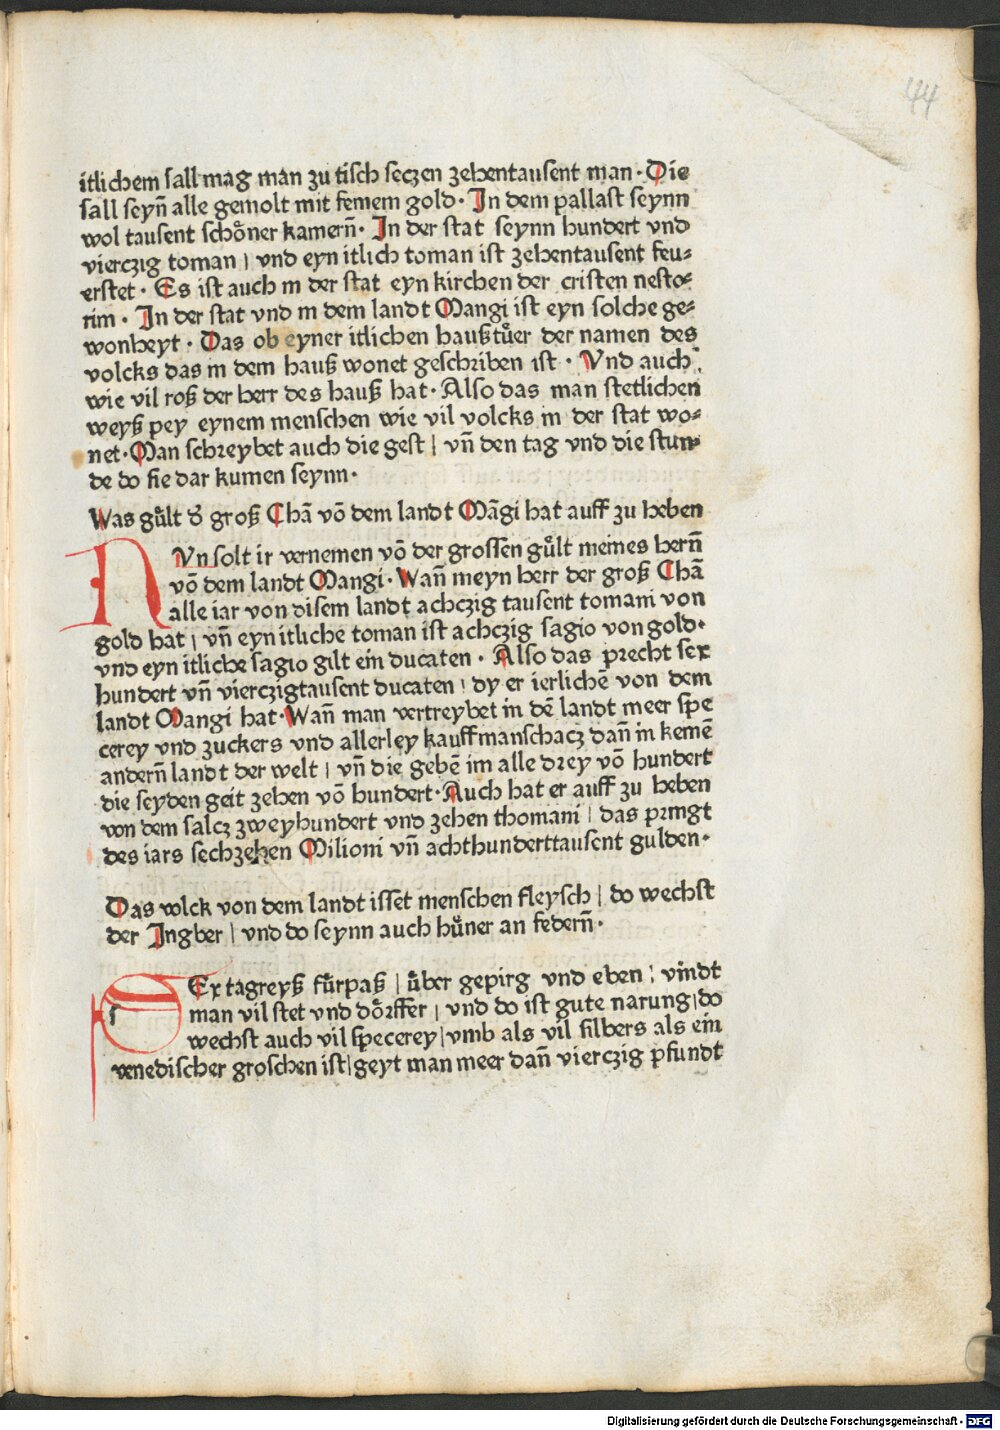 44
itlichem sall mag man zu tisch seczen zehentausent man · Die
sall seyn̄ alle gemolt mit feinem gold · In dem pallast seynn
wol tausent schoͤner kamern̄ · In der stat seynn hundert vnd
vierczig toman | vnd eyn itlich toman ist zehentausent feu⸗
erstet · Es ist auch in der stat eyn kirchen der cristen nesto⸗
rim · In der stat vnd in dem landt Mangi ist eyn solche ge⸗
wonheyt · Das ob eyner itlichen haußtuͤer der namen des
volcks das in dem hauß wonet geschriben ist · Vnd auch
wie vil roß der herr des hauß hat · Also das man stetlichen
weyß pey eynem menschen wie vil volcks in der stat wo⸗
net · Man schreybet auch die gest | vn̄ den tag vnd die stun⸗
de do sie dar kumen seynn ·
Was guͤlt d̕ groß Chā vō dem landt Māgi hat auff zu heben
NVn solt ir vernemen vō der grossen guͤlt meines hern̄
vō dem landt Mangi · Wan̄ meyn herr der groß Chā
alle iar von disem landt achczig tausent tomani von
gold hat | vn̄ eyn itliche toman ist achczig sagio von gold ·
vnd eyn itliche sagio gilt ein ducaten · Also das precht sex
hundert vn̄ vierczigtausent ducaten | dy er ierlichē von dem
landt Mangi hat · Wan̄ man vertreybet in dē landt meer spe
cerey vnd zuckers vnd allerley kauffmanschacz dan̄ in kemē
andern̄ landt der welt | vn̄ die gebē im alle drey vō hundert
die seyden geit zehen vō hundert · Auch hat er auff zu heben
von dem salcz zweyhundert vnd zehen thomani | das pringt
des iars sechzehen Milioni vn̄ achthunderttausent gulden ·
Das volck von dem landt isset menschen fleysch | do wechst
der Ingber | vnd do seynn auch huͤner an federn̄ ·
SEx tagreyß fuͤrpaß | uͤber gepirg vnd eben | vindt
man vil stet vnd doͤrffer | vnd do ist gute narung | do
wechst auch vil specerey | vmb als vil silbers als ein
venedischer groschen ist | geyt man meer dan̄ vierczig pfundt
Digitalisierung gefördert durch die Deutsche Forschungsgemeinschaft - DFG